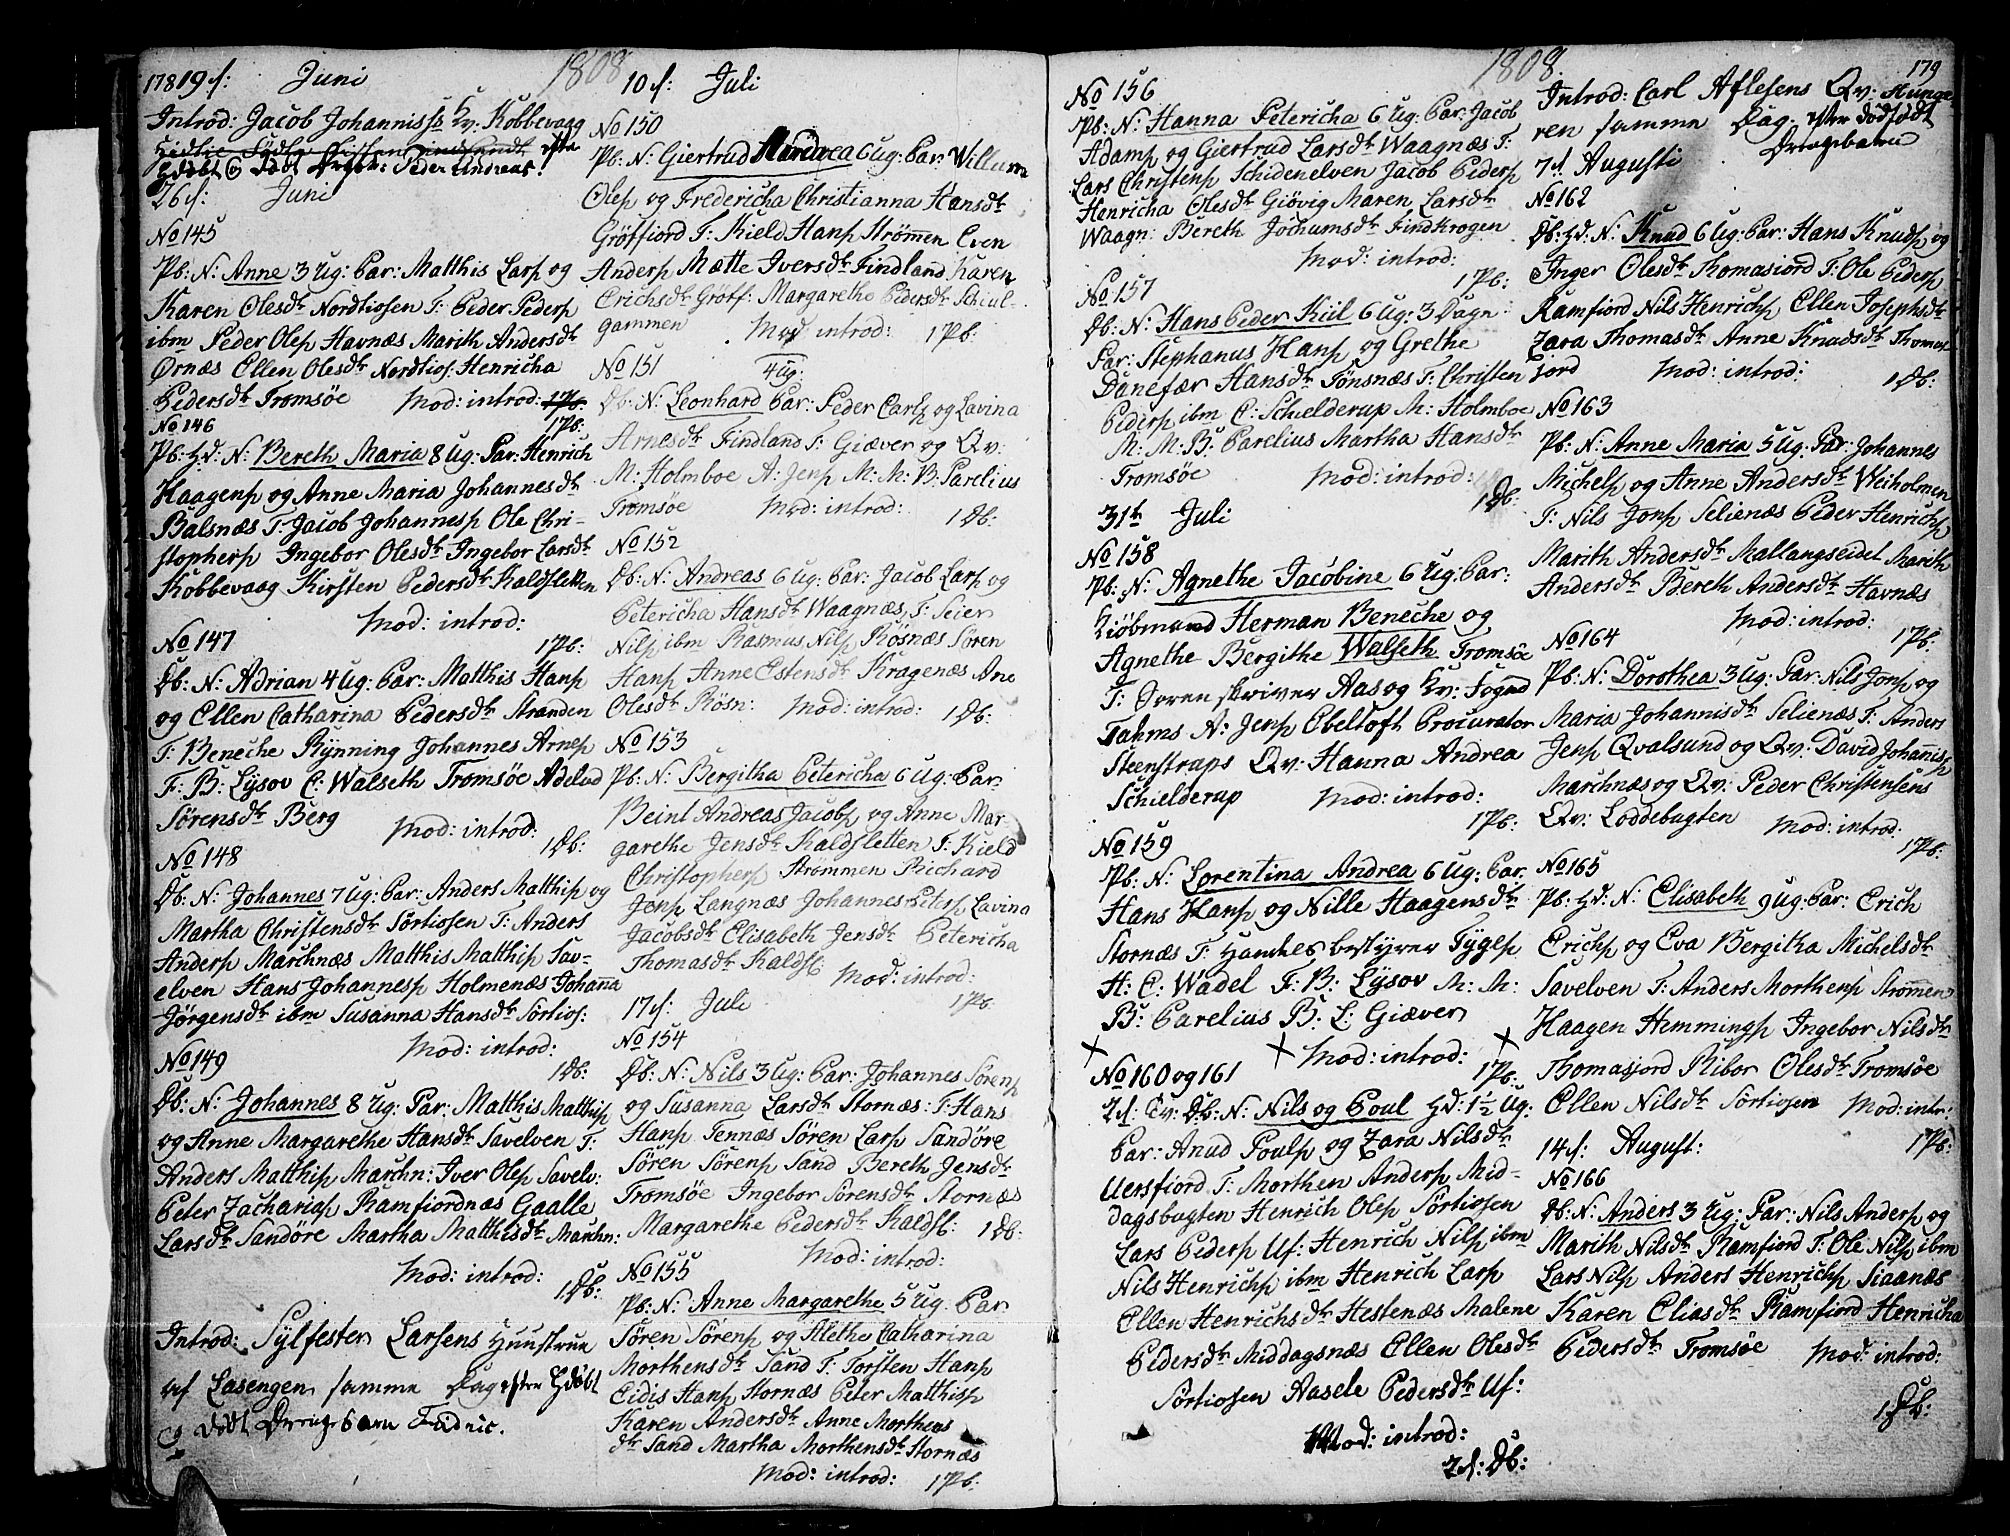 178
1808
19 s: Juni
Introd: Jacob Johanniss Kv: Kobbevaag
Hdøbt og død Drgb: Peder Andreas.
26 s: Juni
No 145
Pb: N: Anne 3 Ug: Par: Matthis Larss og
Karen Olesdtr Nordtiosen F: Peder Pederss
ibm Peder Oless Havnæs Marith Andersdtr
Ørnæs Ellen Olesdtr Nordtios: Henricha
Pedersdtr Tromsøe Mod: introd: 1 Pb:
1 Pb:
No 146
Pb: Hd: N: Bereth Maria 8 Ug: Par: Henrich
Haagenss og Anne Maria Johannesdtr
Balsnæs F: Jacob Johanness Ole Chri-
stopherss Ingebor Olesdtr Ingebor Larsdtr
Kobbevaag Kirsten Pedersdtr Kaldsletten
Mod: introd:
1 Pb:
No 147
Db: N: Adrian 4 Ug: Par: Matthis Hanss
og Ellen Catharina Pedersdtr Stranden
F: Beneche Rÿnning Johannes Arness
F: B: Lÿsov C: Walseth Tromsøe Adelud
Sørensdtr Berg Mod: introd:
1 Db:
No 148
Db: N: Johannes 7 Ug: Par: Anders Matthiss og
Martha Christensdtr Sørtiosen F: Anders
Anderss Marchnæs Matthis Matthiss Sav-
elven Hans Johanness Holmenæs Johanna
Jørgensdtr ibm Susanna Hansdtr Sørtios:
Mod: introd:
1 Db:
No 149
Db: N: Johannes 8 Ug: Par: Matthis Matthiss
og Anne Margarethe Hansdtr Savelven F:
Anders Matthiss Marchn: Iver Oless Savelv:
Peter Zachariass Ramfiordnæs Gaalle
Larsdtr Sandøre Martha Matthisdtr Marchn:
Mod: introd:
1 Db:
Introd: Sylfester Larsens Huustrue
af Lasengen samme Dag efter Hdøbt
og dødt Drengebarn Fridric.
10 s: Juli
No 150
Pb: N: Giertrud Mardrea 6 Ug: Par: Willum
Oless og Fredericha Christianna Hansdtr
Grøtfiord F: Kield Hanss Strømmen Even
Anderss Mætte Iversdtr Findland Karen
Erichsdtr Grøtf: Margarethe Pedersdtr Skiul-
gammen Mod introd: 1 Pb:
No 151
4 Ug:
Db: N: Leonhard Par: Peder Carls og Lavina
Arnesdtr Findland F: Giæver og Qv:
M: Holmboe A: Jenss M: M: B: Parelius
Tromsøe Mod: introd:
1 Db:
No 152
Db: N: Andreas 6 Ug: Par: Jacob Larss og
Petericha Hansdtr Waagnæs F: Seier
Nilss ibm Rasmus Nilss Røsnæs Søren
Hanss Anne Estensdtr Kragenæs Ane
Olesdtr Røsn: Mod: introd: 1 Db:
No 153
Pb: N: Bergitha Petericha 6 Ug: Par:
Beint Andreas Jacobss og Anne Mar-
garethe Jensdtr Kaldsletten F: Kield
Christopherss Strømmen Richard
Jenss Langnæs Johannes Peterss Lavina
Jacobsdtr Elisabeth Jensdtr Petericha
Thomasdtr Kaldsl: Mod: introd:
1 Pb:
17 s: Juli
No 154
Db: N: Nils 3 Ug: Par: Johannes Sørenss
og Susanna Larsdtr Stornæs: F: Hans
Hanss Tennæs Søren Larss Sandøre
Søren Sørenss Sand Bereth Jensdtr
Tromsøe Ingebor Sørensdtr Stornæs
Margarethe Pedersdtr Kaldsl: 1 Db:
Mod: introd:
No 155
Pb: N: Anne Margarethe 5 Ug. Par
Søren Sørenss og Alethe Catharina
Morthensdtr Sand F: Torsten Hanss
Eidis Hanss Stornæs Peter Matthiss
Karen Andersdtr Anne Morthens
dtr Sand Martha Morthensdtr Stornæs
Mod: introd: 1 Pb:
1808
179
No 156
Pb: N: Hanna Petericha 6 Ug: Par: Jacob
Adamss og Giertrud Larsdtr Waagnæs F:
Lars Christenss Schidenelven Jacob Pederss
Henricha Olesdtr Giøvig Maren Larsdtr
Waagn: Bereth Jochumsdtr Findkrogen
Mod: introd:
1 Pb:
No 157
Db: N: Hans Peder Kiil 6 Ug: 3 Dagn
Par: Stephanus Hanss og Grethe
Danefær Hansdtr Tønsnæs F: Christen
Pederss ibm C: Schielderup M: Holmboe
M: M: B: Parelius Martha Hansdtr
Tromsøe Mod: introd:
1 Db:
31te Juli
No 158
Pb: N: Agnethe Jacobine 6 Ug: Par:
Kiøbmand Herman Beneche og
Agnethe Bergithe Walseth Tromsøe
F: Sorenskriver Aas og Kv: Fogud
Tahms A: Jenss Ebeltoft Procurator
Steenstraps Qv: Hanna Andrea
Schielderup Mod: introd:
1 Pb:
No 159
Pb: N: Lorentina Andrea 6 Ug: Par
Hans Hanss og Nille Haagensdtr
Stornæs F: Handels bestyrer Tÿgess
H: C: Wadel F: B: Lÿsov M: M:
B: Parelius B: L: Giæver
Mod: introd: 1 Pb:
No 160 og 161
2 s: Tv: Db: N: Nils og Poul Hd: 1½ Ug:
Par: Anud Poulss og Zara Nilsdtr
Uersfiord F: Morthen Anderss Mid-
dagsbugten Henrich Oless Sørtiosen
Lars Pederss Uf: Henrich Nilss ibm
Nils Henrichss ibm Henrich Larss
Ellen Henrichsdtr Hestenæs Malene
Pedersdtr Middagsnæs Ellen Olesdtr
Sørtiosen Aasele Pedersdtr Uf:
Mod: introd:
2 s: Db:
Introd: Carl Aflesens Qv: Hunga
ren samme Dag. efter dødfødt
Drengebarn
7 s Augusti
No 162
Db: Hd: N: Knud 6 Ug: Par: Hans Knudss og
Inger Olesdtr Thomasiord F: Ole Pederss
Ramfiord Nils Henrichss Ellen Josephsdtr
Zara Thomasdtr Anne Knudsdtr Thomas
jord Mod: introd:
1 Db:
No 163
Pb: N: Anne Maria 5 Ug: Par: Johannes
Michelss og Anne Andersdtr Weiholmen
F: Nils Jonss Selienæs Peder Henrichss
Marith Andersdtr Mallangseidet Marith
Andersdtr Bereth Andersdtr Havnæs
Mod: introd:
1 Pb:
No 164
Pb: N: Dorothea 3 Ug: Par: Nils Jonss og
Maria Johannisdtr Selienæs F: Anders
Jenss Qvalsund og Qv: David Johanniss
Marchnæs og Qv: Peder Christensens
Qv: Loddebugten Mod: introd:
1 Pb:
No 165
Pb: Hd: N: Elisabeth 9 Ug: Par: Erich
Erichss og Eva Bergitha Michelsdtr
Savelven F: Anders Morthenss Strømmen
Haagen Hemmingss Ingebor Nilsdtr
Thomasjord Ribor Olesdtr Tromsøe
Ellen Nilsdtr Sørtiosen Mod: intr:
1 Pb:
14 s: August:
No 166
Db: N: Anders 3 Ug: Par: Nils Anderss og
Marith Nilsdtr Ramfiord F: Ole Nilss ibm
Lars Nilss Anders Henrichss Siaanæs
Karen Eliasdtr Ramfiord Henricha
Pedersdtr Tromsøe Mod: introd:
1 Db: